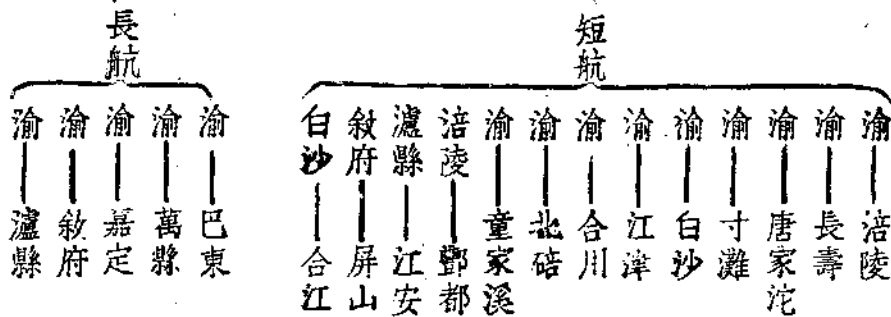 短航
渝——涪陵
渝——長壽
渝——唐家沱
渝——寸灘
渝——白沙
渝——江津
渝——合川
渝——北碚
渝——童家溪
涪陵——酆都
瀘縣——江安
敘府——屏山
白沙——合江
長航
渝——巴東
渝——萬縣
渝——嘉定
渝——敘府
渝——瀘縣